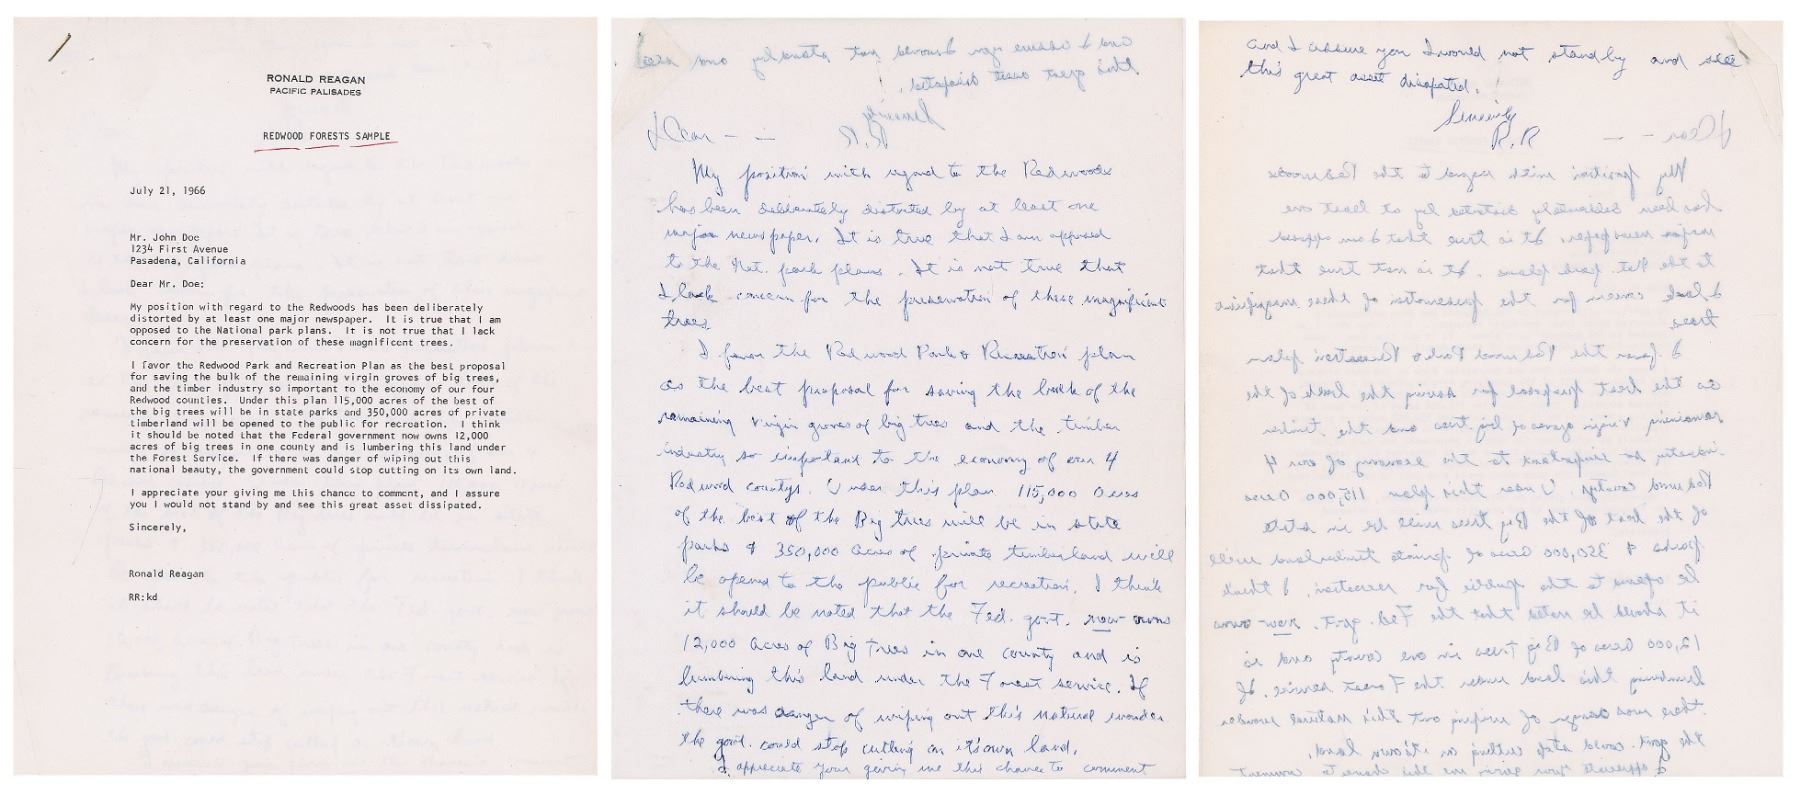 RONALD REAGAN
PACIFIC PALISADES
REDWOOD FORESTS SAMPLE
July 21, 1966
Mr. John Doe
1234 First Avenue
Pasadena, California
Dear Mr. Doe:
My position with regard to the Redwoods has been deliberately
distorted by at least one major newspaper. It is true that I am
opposed to the National park plans. It is not true that I lack
concern for the preservation of these magnificent trees.
I favor the Redwood Park and Recreation Plan as the best proposal
for saving the bulk of the remaining virgin groves of big trees,
and the timber industry so important to the economy of our four
Redwood counties. Under this plan 115,000 acres of the best of
the big trees will be in state parks and 350,000 acres of private
timberland will be opened to the public for recreation. I think
it should be noted that the Federal government now owns 12,000
acres of big trees in one county and is lumbering this land under
the Forest Service. If there was danger of wiping out this
national beauty, the government could stop cutting on its own land.
I appreciate your giving me this chance to comment, and I assure
you I would not stand by and see this great asset dissipated.
Sincerely,
Ronald Reagan
RR:kd
Dear — —
My position with regard to the Redwoods
has been deliberately distorted by at least one
major newspaper. It is true that I am opposed
to the Nat. park plans. It is not true that
I lack concern for the preservation of these magnificent
trees.
I favor the Redwood Park & Recreation plan
as the best proposal for saving the bulk of the
remaining virgin groves of big trees and the timber
industry so important to the economy of our 4
Redwood countys. Under this plan 115,000 acres
of the best of the Big trees will be in state
parks & 350,000 acres of private timberland will
be opened to the public for recreation. I think
it should be noted that the Fed. govt. now owns
12,000 acres of Big Trees in one county and is
lumbering this land under the Forest service. If
there was danger of wiping out this natural wonder
the govt. could stop cutting on it's own land.
I appreciate your giving me this chance to comment
and I assure you I would not stand by and see
this great asset disipated.
Sincerely
R.R